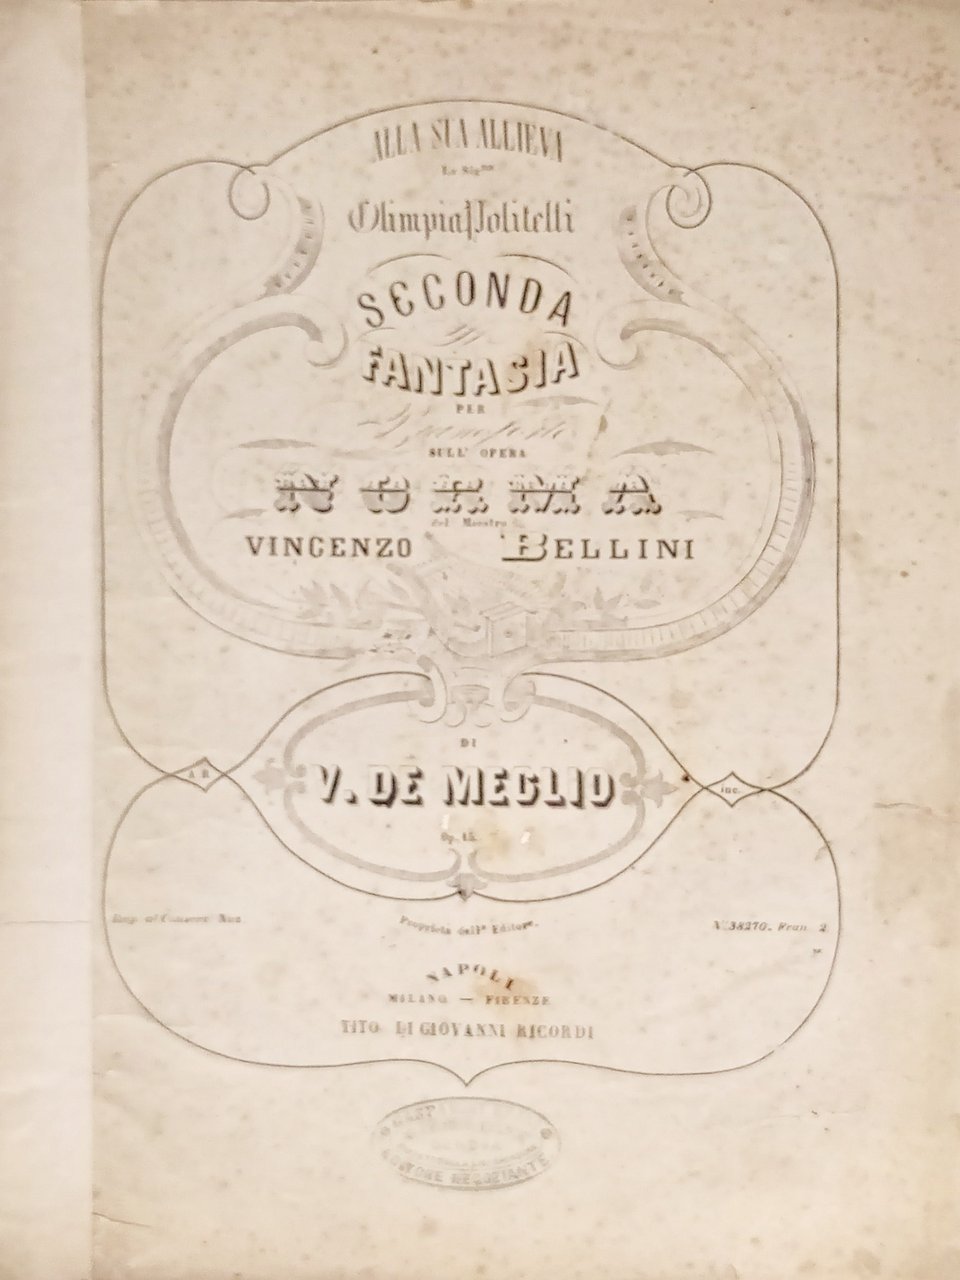 ALLA SUA ALLIEVA
La Sig.na
Olimpia Politelli
SECONDA
FANTASIA
PER
Pianoforte
SULL' OPERA
NORMA
del Maestro
VINCENZO BELLINI
DI
V. DE MEGLIO
Op. 15.
A R inc.
Proprietà dell' Editore.
N. 38270. Fran. 2
NAPOLI
MILANO — FIRENZE
TITO DI GIOVANNI RICORDI
EDITORE NEGOZIANTE